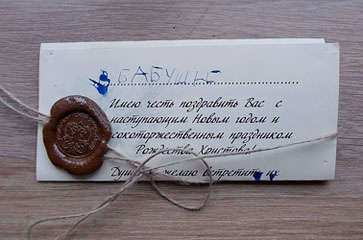 БАБУШКЕ
Имею честь поздравить Вас с
наступающим Новым годом и
сокоторжественным праздником
Рождества Христова!
желаю встретить их